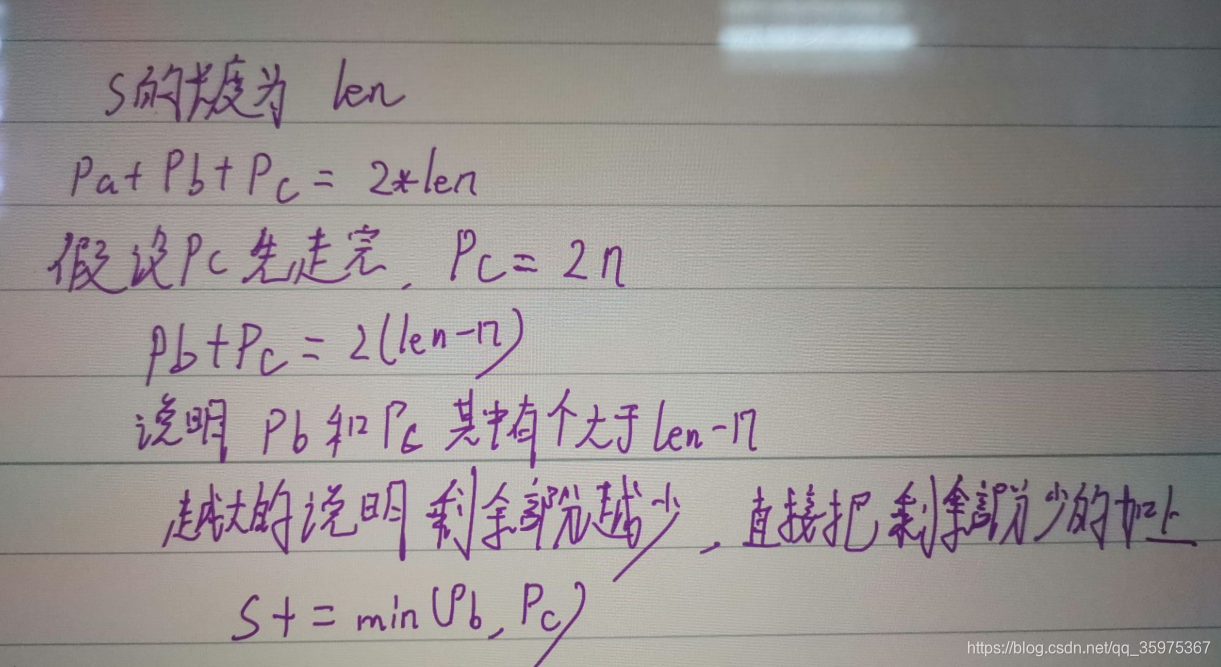 S的长度为 len
Pa+Pb+Pc=2*len
假设Pc先走完, Pc=2n
Pb+Pc=2(len-n)
说明 Pb和Pc 其中有个大于len-n
越大的说明 剩余部分越少, 直接把剩余部分少的加上
S+=min(Pb, Pc)
https://blog.csdn.net/qq_35975367